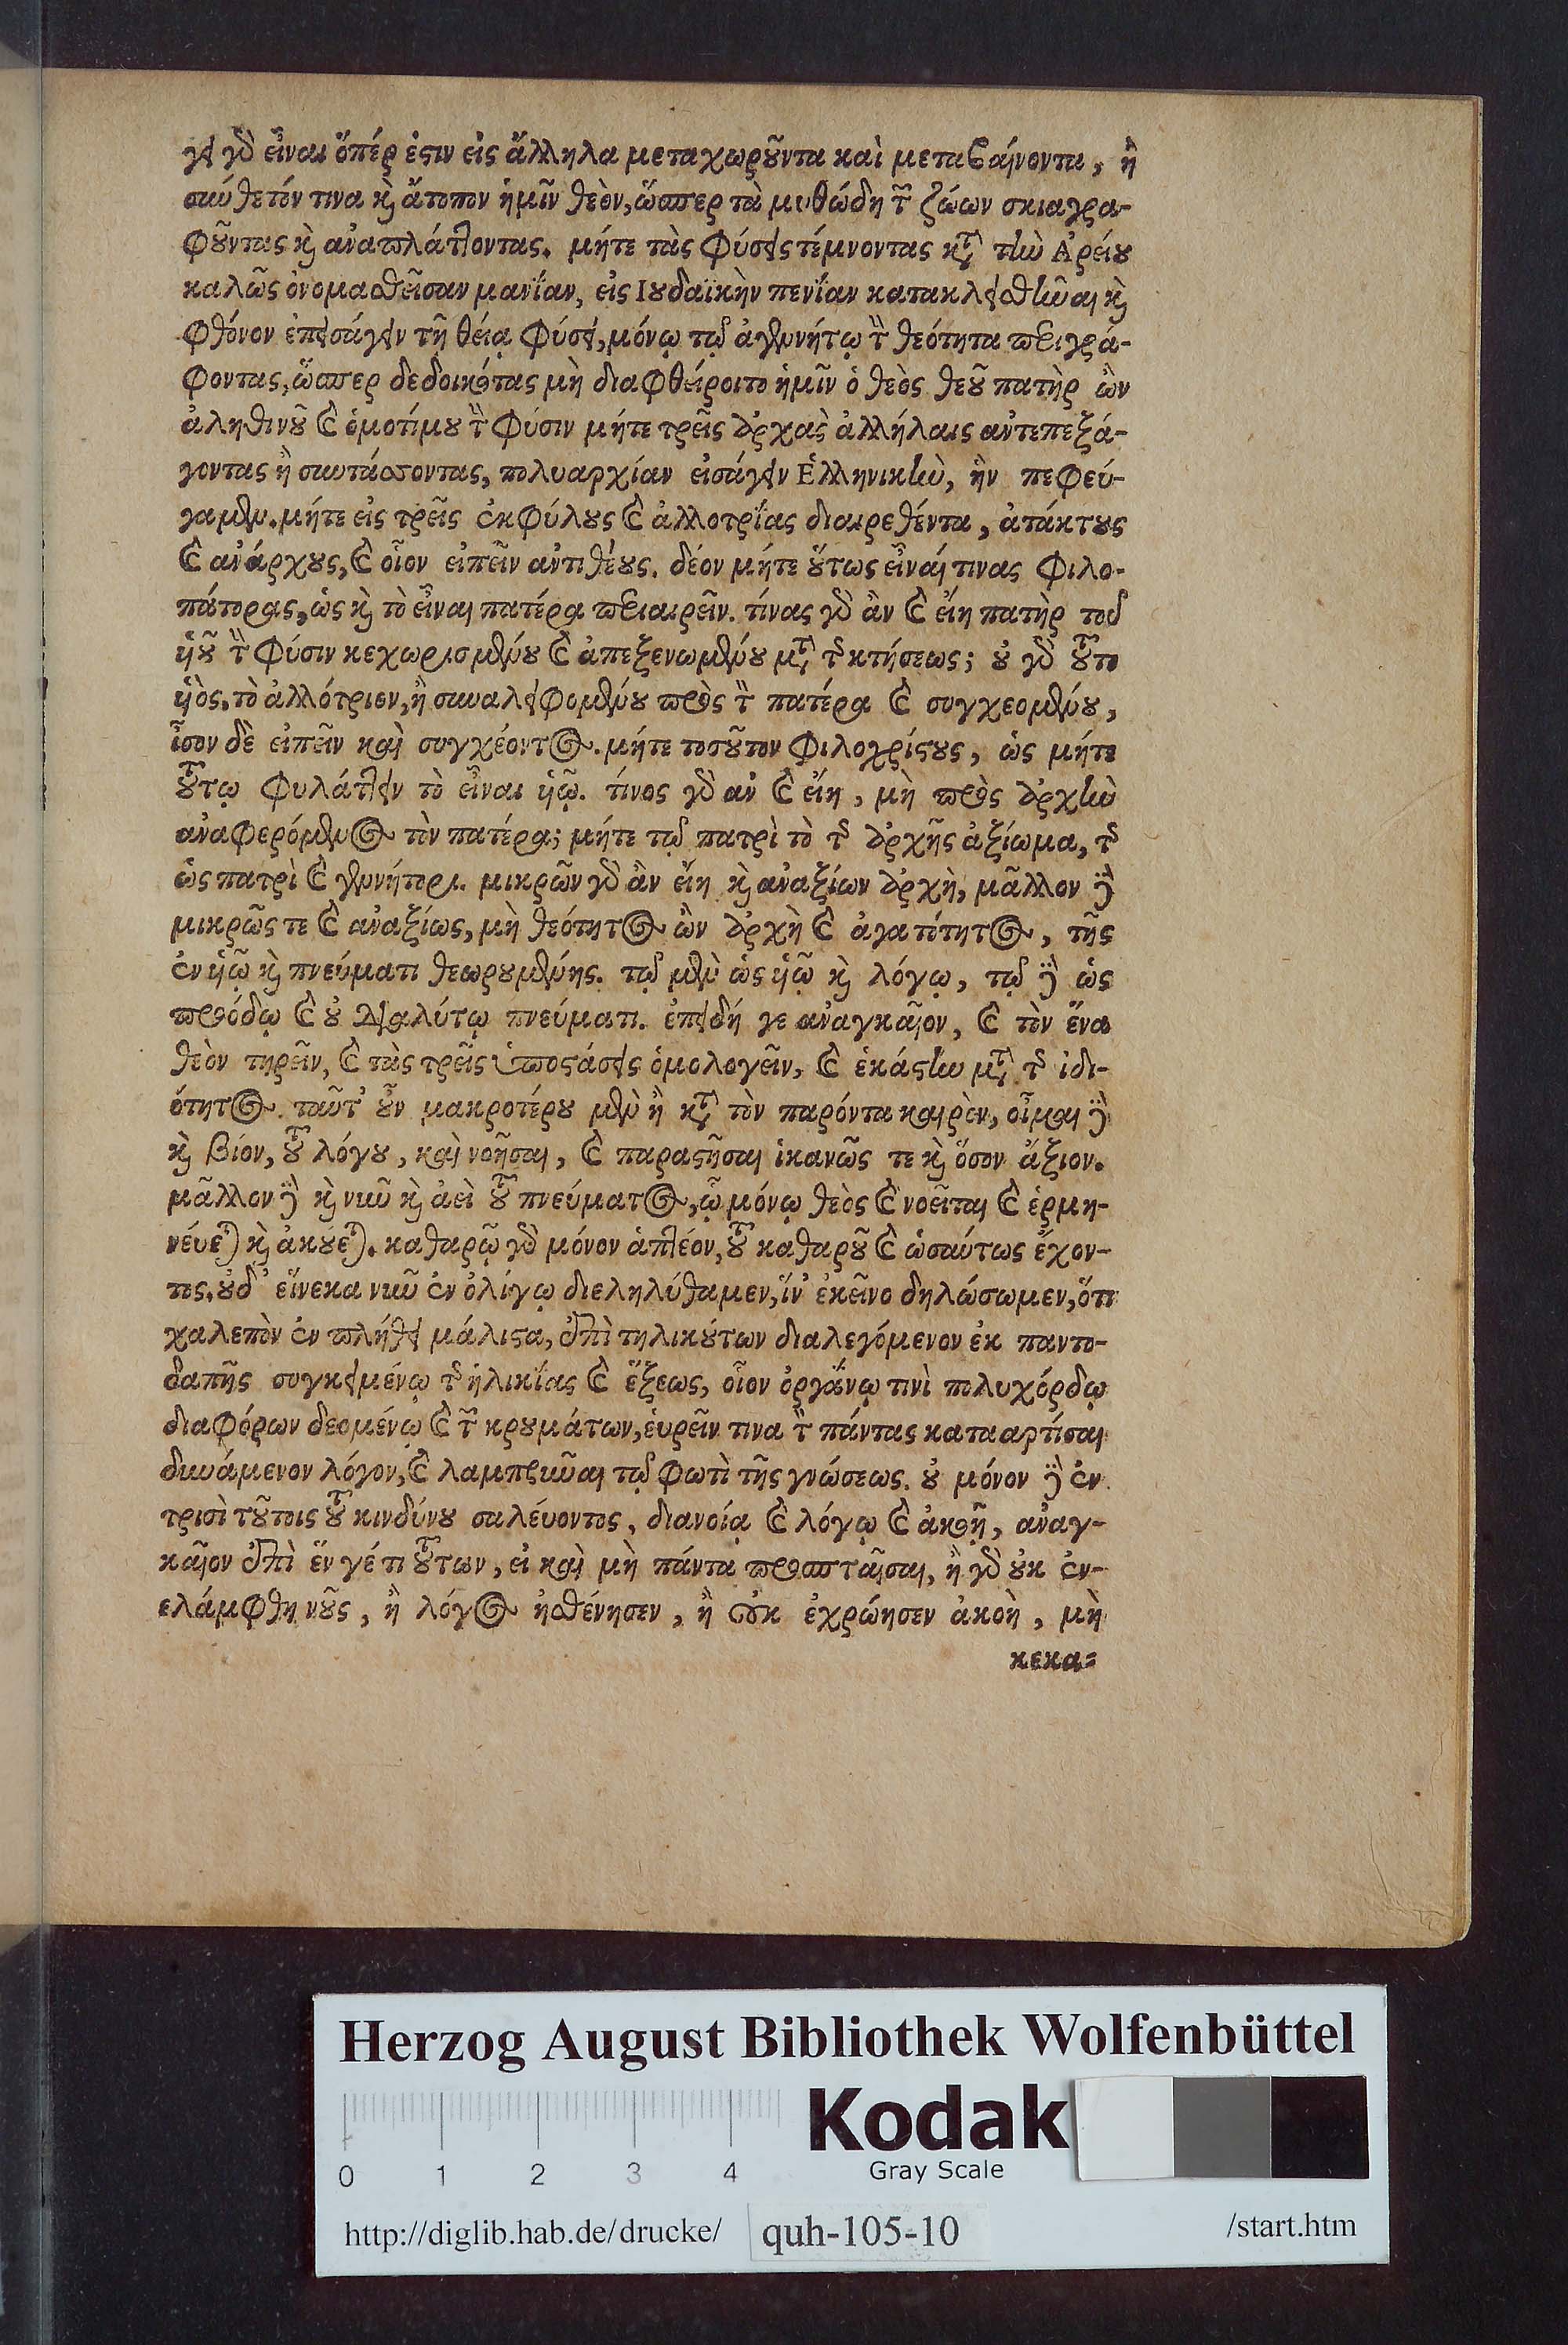 γει γὸ εἶναι ὅπέρ ἐστιν εἰς ἄλληλα μεταχωροῦντα καὶ μεταβαίνοντα, ἢ
σύνθετόν τινα καὶ ἄτοπον ἡμῖν θεὸν, ὥσπερ τὰ μυθώδη τῶν ζώων σκιαγρα-
φοῦντας καὶ ἀναπλάττοντας. μήτε τὰς φύσεις τέμνοντας κατὰ τὴν Ἀρείου
καλῶς ὀνομασθεῖσαν μανίαν, εἰς Ιουδαϊκὴν πενίαν κατακλεισθῆναι καὶ
φθόνον ἐπεισάγειν τῇ θείᾳ φύσει, μόνῳ τῷ ἀγεννήτῳ τὴν θεότητα περιγρά-
φοντας, ὥσπερ δεδοικότας μὴ διαφθείροιτο ἡμῖν ὁ θεὸς θεοῦ πατὴρ ὢν
ἀληθινοῦ καὶ ὁμοτίμου τὴν φύσιν μήτε τρεῖς ἀρχὰς ἀλλήλαις ἀντεπεξά-
γοντας ἢ συντάσσοντας, πολυαρχίαν εἰσάγειν Ἑλληνικὴν, ἣν πεφεύ-
γαμεν. μήτε εἰς τρεῖς ἐκφύλους καὶ ἀλλοτρίας διαιρεθέντα, ἀτάκτους
καὶ ἀνάρχους, καὶ οἷον εἰπεῖν ἀντιθέους. δέον μήτε οὕτως εἶναί τινας φιλο-
πάτορας, ὡς καὶ τὸ εἶναι πατέρα περιαιρεῖν. τίνος γὸ ἂν καὶ εἴη πατὴρ τοῦ
υἱοῦ τὴν φύσιν κεχωρισμένου καὶ ἀπεξενωμένου μετὰ τῆς κτήσεως; οὐ γὸ τοῦτο
υἱὸς, τὸ ἀλλότριον, ἢ συναλειφομένου πρὸς τὸν πατέρα καὶ συγχεομένου,
ἶσον δὲ εἰπεῖν καὶ συγχέοντος. μήτε τοσοῦτον φιλοχρίστους, ὡς μήτε
τούτῳ φυλάττειν τὸ εἶναι υἱῷ. τίνος γὸ ἀν καὶ εἴη, μὴ πρὸς ἀρχὴν
ἀναφερόμενος τὸν πατέρα; μήτε τῷ πατρὶ τὸ τῆς ἀρχῆς ἀξίωμα, τῆς
ὡς πατρὶ καὶ γεννήτορι. μικρῶν γὸ ἂν εἴη καὶ ἀναξίων ἀρχὴ, μᾶλλον δὲ
μικρῶς τε καὶ ἀναξίως, μὴ θεότητος ὢν ἀρχὴ καὶ ἀγατότητος, τῆς
ἐν υἱῷ καὶ πνεύματι θεωρουμένης. τῷ μὲν ὡς υἱῷ καὶ λόγῳ, τῷ δὲ ὡς
προόδῳ καὶ οὐ διαλύτῳ πνεύματι. ἐπειδή γε ἀναγκαῖον, καὶ τὸν ἕνα
θεὸν τηρεῖν, καὶ τὰς τρεῖς ὑποστάσεις ὁμολογεῖν, καὶ ἑκάστην μετὰ τῆς ἰδι-
ότητος. ταῦτ' οὖν μακροτέρου μὲν ἢ κατὰ τὸν παρόντα καιρὸν, οἶμαι δὲ
καὶ βίον, τοῦ λόγου, καὶ νοῆσαι, καὶ παραστῆσαι ἱκανῶς τε καὶ ὅσον ἄξιον.
μᾶλλον δὲ καὶ νῦν καὶ ἀεὶ τοῦ πνεύματος, ᾧ μόνῳ θεὸς καὶ νοεῖται καὶ ἑρμη-
νεύεται καὶ ἀκούεται. καθαρῷ γὸ μόνον ἁπτέον, τοῦ καθαροῦ καὶ ὡσαύτως ἔχον-
τος. οὗδ' εἵνεκα νῦν ἐν ὀλίγῳ διεληλύθαμεν, ἵν' ἐκεῖνο δηλώσωμεν, ὅτι
χαλεπὸν ἐν πλήθει μάλιστα, ἐπὶ τηλικούτων διαλεγόμενον ἐκ παντο-
δαπῆς συγκειμένῳ τῆς ἡλικίας καὶ ἕξεως, οἷον ὀργάνῳ τινὶ πολυχόρδῳ
διαφόρων δεομένῳ καὶ τῶν κρουμάτων, εὑρεῖν τινα τὸν πάντας καταρτίσαι
δυνάμενον λόγον, καὶ λαμπρῦναι τῷ φωτὶ τῆς γνώσεως. οὐ μόνον δὲ ἐν
τρισὶ τούτοις τοῦ κινδύνου σαλεύοντος, διανοίᾳ καὶ λόγῳ καὶ ἀκοῇ, ἀναγ-
καῖον ἐπὶ ἕν γέ τι τούτων, εἰ καὶ μὴ πάντα προσπταῖσαι, ἢ γὸ οὐκ ἐν-
ελάμφθη νοῦς, ἢ λόγος ἠσθένησεν, ἢ οὐκ ἐχρώησεν ἀκοὴ, μὴ
κεκα-
Herzog August Bibliothek Wolfenbüttel
Kodak
Gray Scale
0 1 2 3 4
http://diglib.hab.de/drucke/ quh-105-10 /start.htm